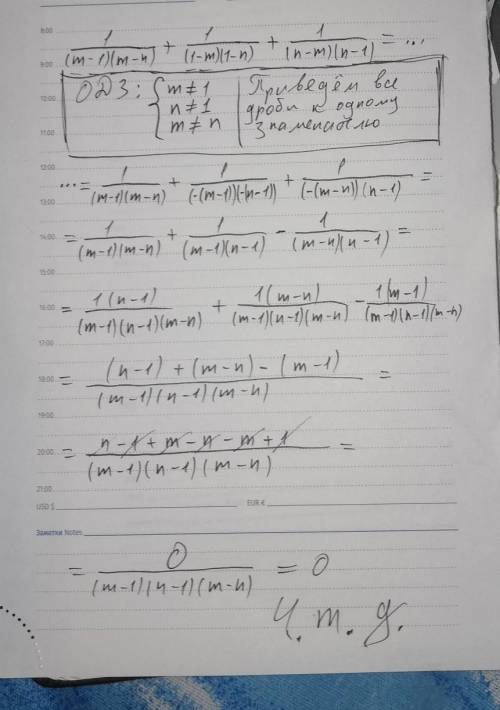 8:00
1/((m-1)(m-n)) + 1/((1-m)(1-n)) + 1/((n-m)(n-1)) = ...
9:00
ОДЗ: { m ≠ 1 | Приведём все
10:00 n ≠ 1 | дроби к одному
m ≠ n | знаменателю
11:00
12:00
... = 1/((m-1)(m-n)) + 1/((-(m-1))(-(n-1))) + 1/((-(m-n))(n-1)) =
13:00
14:00 = 1/((m-1)(m-n)) + 1/((m-1)(n-1)) - 1/((m-n)(n-1)) =
15:00
16:00 = 1(n-1)/((m-1)(n-1)(m-n)) + 1(m-n)/((m-1)(n-1)(m-n)) - 1(m-1)/((m-1)(n-1)(m-n))
17:00
18:00 = ((n-1) + (m-n) - (m-1))/((m-1)(n-1)(m-n)) =
19:00
20:00 = (n-1+m-n-m+1)/((m-1)(n-1)(m-n)) =
21:00
USD $ EUR €
Заметки Notes
= 0/((m-1)(n-1)(m-n)) = 0
Ч.т.д.